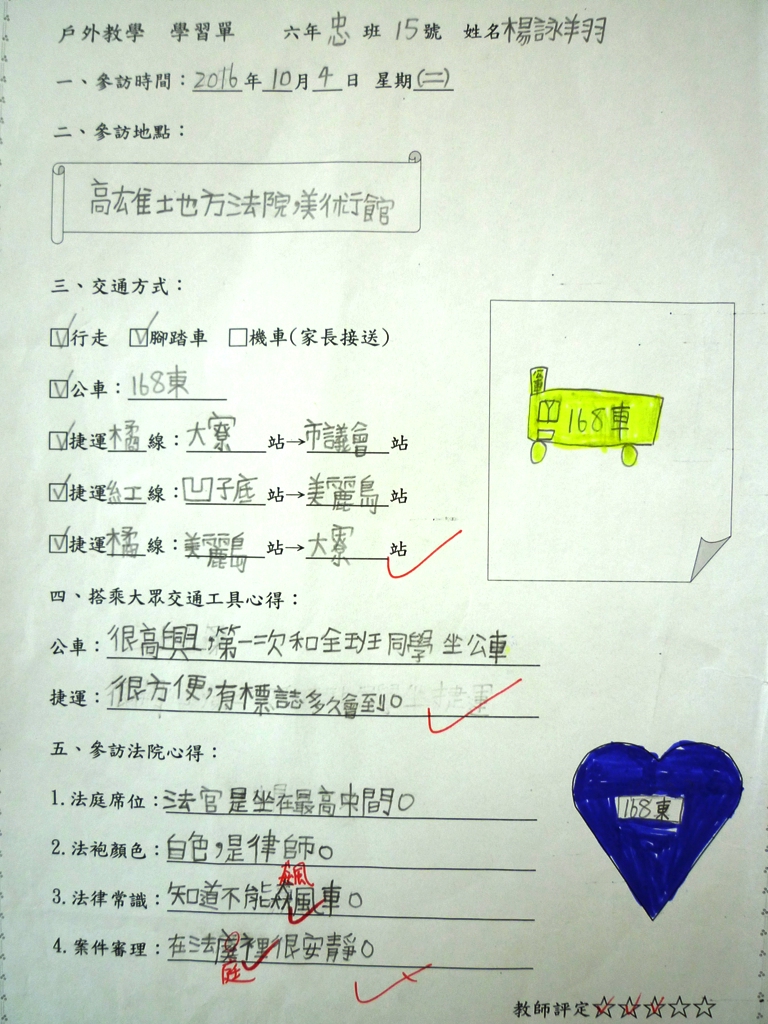 戶外教學 學習單 六年忠班15號 姓名楊詠翔
一、參訪時間：2016年10月4日 星期(二)
二、參訪地點：
高雄土也方法院,美術館
三、交通方式：
行走 腳踏車 機車(家長接送)
公車：168東
捷運橘線：大寮站→市議會站
捷運紅線：凹子底站→美麗島站
捷運橘線：美麗島站→大寮站
168車
四、搭乘大眾交通工具心得：
公車：很高興,第一次和全班同學坐公車
捷運：很方便,有標誌多久會到。
五、參訪法院心得：
1.法庭席位：法官是坐在最高中間。
168東
2.法袍顏色：白色,是律師。
3.法律常識：知道不能飆車。
4.案件審理：在法庭裡很安靜。
教師評定☆☆☆☆☆